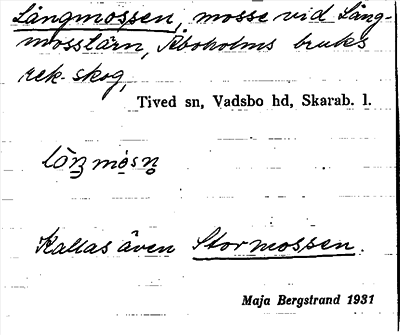 Långmossen, mosse vid Lång-
mosstärn, Åboholms bruks
rek. skog,
Tived sn, Vadsbo hd, Skarab. l.
Kallas även Stormossen.
Maja Bergstrand 1931